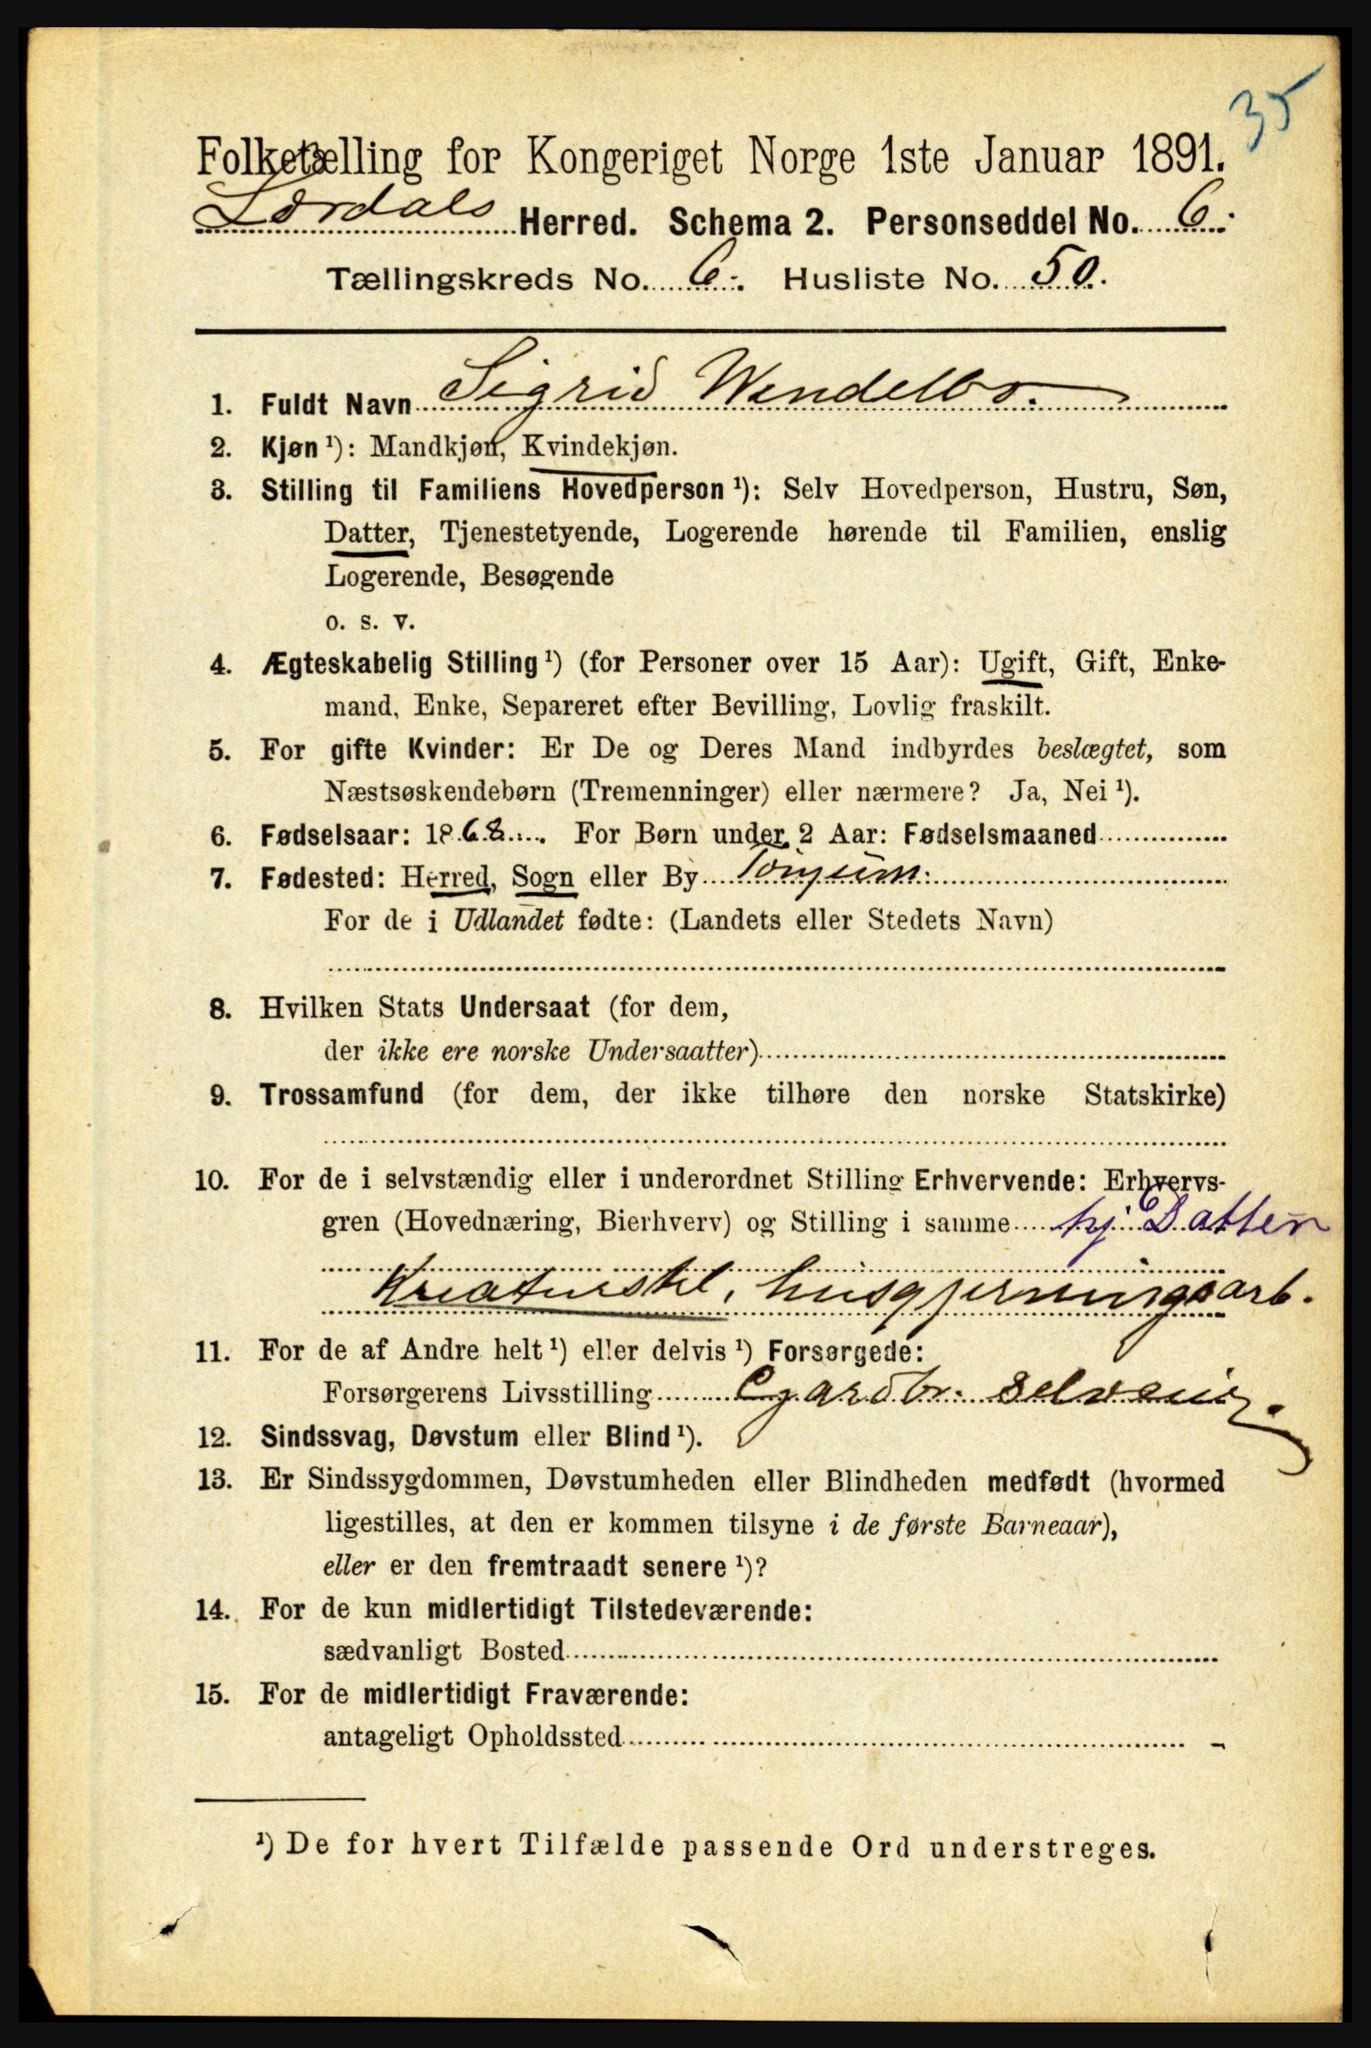 35
Folketælling for Kongeriget Norge 1ste Januar 1891.
Lærdals Herred. Schema 2. Personseddel No. 6.
Tællingskreds No. 6. Husliste No. 50.
1. Fuldt Navn Sigrid Wendelbo.
2. Kjøn ¹): Mandkjøn, Kvindekjøn.
3. Stilling til Familiens Hovedperson ¹): Selv Hovedperson, Hustru, Søn,
Datter, Tjenestetyende, Logerende hørende til Familien, enslig
Logerende, Besøgende
o. s. v.
4. Ægteskabelig Stilling ¹) (for Personer over 15 Aar): Ugift, Gift, Enke-
mand, Enke, Separeret efter Bevilling, Lovlig fraskilt.
5. For gifte Kvinder: Er De og Deres Mand indbyrdes beslægtet, som
Næstsøskendebørn (Tremenninger) eller nærmere? Ja, Nei ¹).
6. Fødselsaar: 1868. For Børn under 2 Aar: Fødselsmaaned
7. Fødested: Herred, Sogn eller By Tønjum.
For de i Udlandet fødte: (Landets eller Stedets Navn)
8. Hvilken Stats Undersaat (for dem,
der ikke ere norske Undersaatter)
9. Trossamfund (for dem, der ikke tilhøre den norske Statskirke)
10. For de i selvstændig eller i underordnet Stilling Erhvervende: Erhvervs-
gren (Hovednæring, Bierhverv) og Stilling i samme hj. Datter
Kreaturstel, husgjerningsarb.
11. For de af Andre helt ¹) eller delvis ¹) Forsørgede:
Forsørgerens Livsstilling Gardbr. selveier.
12. Sindssvag, Døvstum eller Blind ¹).
13. Er Sindssygdommen, Døvstumheden eller Blindheden medfødt (hvormed
ligestilles, at den er kommen tilsyne i de første Barneaar),
eller er den fremtraadt senere ¹)?
14. For de kun midlertidigt Tilstedeværende:
sædvanligt Bosted
15. For de midlertidigt Fraværende:
antageligt Opholdssted
¹) De for hvert Tilfælde passende Ord understreges.